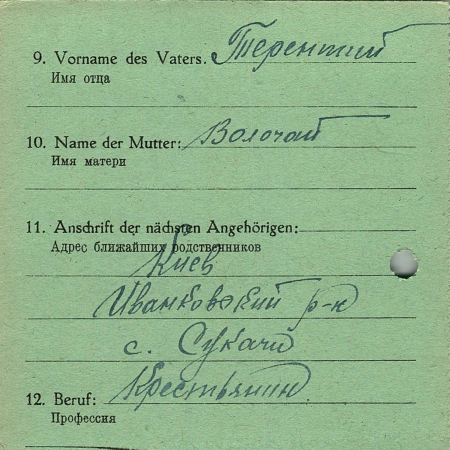 9. Vorname des Vaters. Терентий
Имя отца
10. Name der Mutter: Волочай
Имя матери
11. Anschrift der nächsten Angehörigen:
Адрес ближайших родственников
Киев
Иванковский р-н
с. Сукачи
12. Beruf: Крестьянин.
Профессия